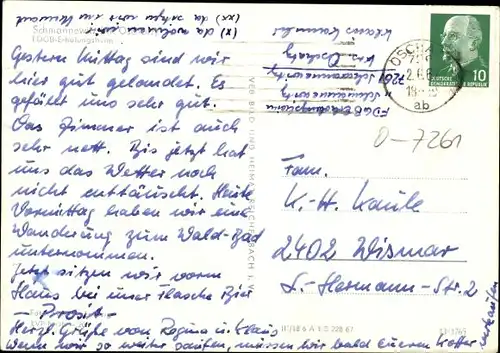 (x) da wohnen wir (xx) da sitzen wir im Moment
Schmannewitz
FDGB-Erholungsheim
Gestern Mittag sind wir
hier gut gelandet. Es
gefällt uns sehr gut.
Das Zimmer ist auch
sehr nett. Bis jetzt hat
uns das Wetter noch
nicht enttäuscht. Heute
Vormittag haben wir eine
Wanderung zum Wald-Bad
unternommen.
Jetzt sitzen wir vorm
Haus bei einer Flasche Bier
– Prosit –
Herzl. Grüße von Regina u. Klaus
Wenn wir so weiter saufen, müssen wir bald euren Koffer verkaufen
VEB BILD UND HEIMAT REICHENBACH I. V.
Klaus
Krs. Oschatz
7261 Schmannewitz
OSCHATZ
2.6.6
ab
DEUTSCHE
DEMOKRATISCHE REPUBLIK
10
O-7261
Fam.
K.-H. Kaule
2402 Wismar
L.-Hermann-Str. 2